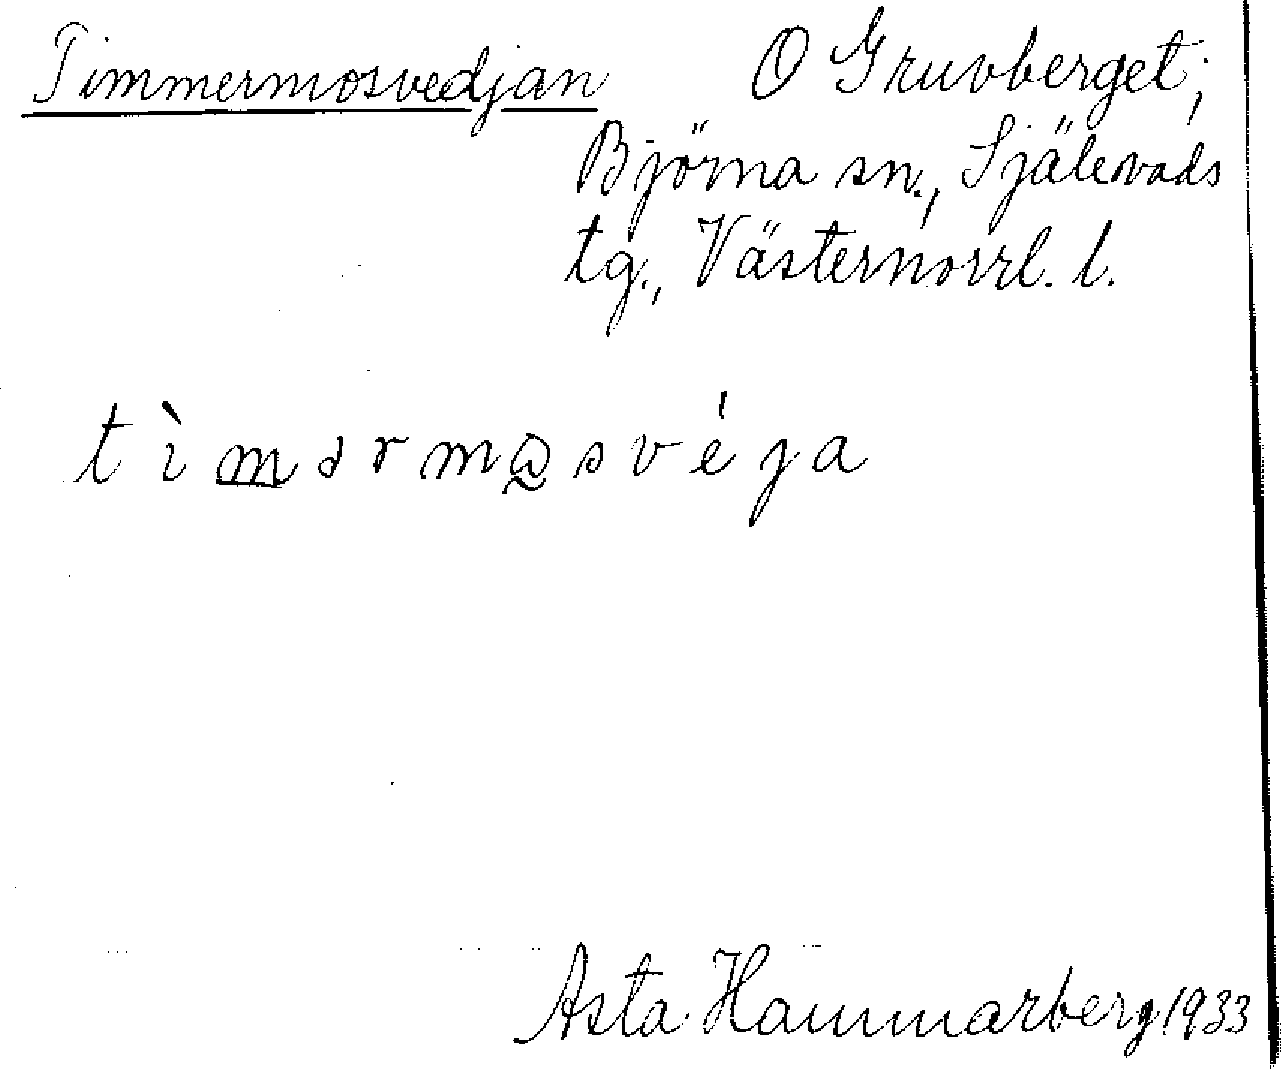 Timmermosvedjan O Gruvberget;
Björna sn., Själevads
tg., Västernorrl. l.
tìmərmåsvéja
Asta Hammarberg 1933